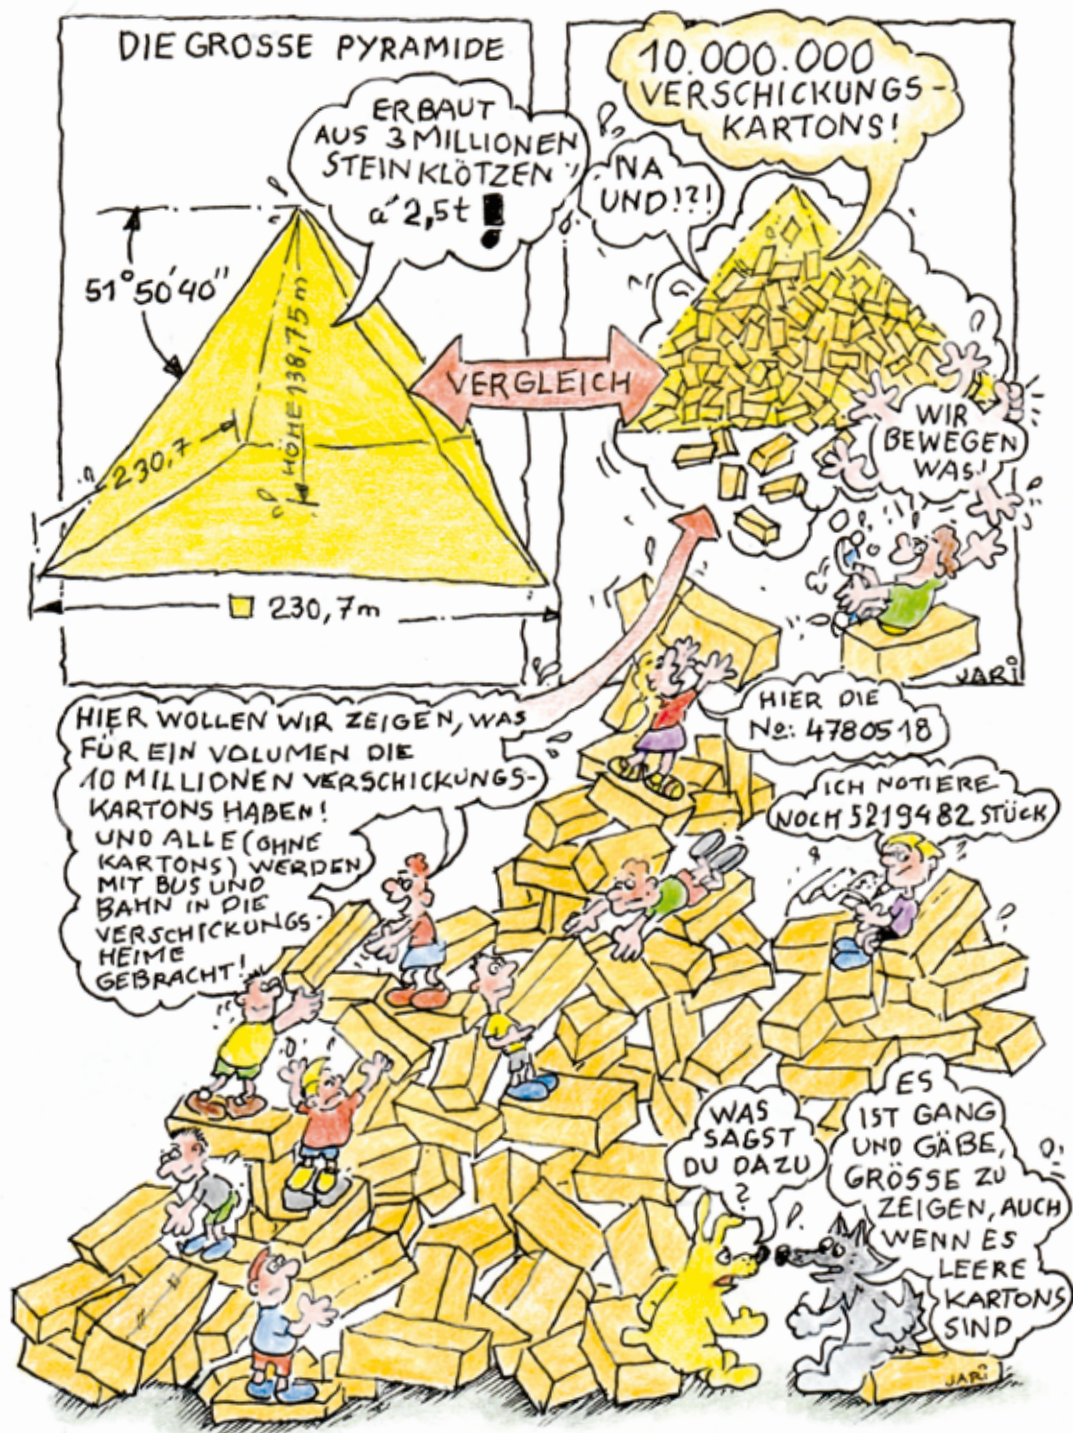 DIE GROSSE PYRAMIDE
ERBAUT
AUS 3 MILLIONEN
STEINKLÖTZEN
á 2,5t !
51° 50' 40"
HÖHE 138,75m
230,7
230,7m
VERGLEICH
10.000.000
VERSCHICKUNGS-
KARTONS!
NA
UND!?!
WIR
BEWEGEN
WAS!
JARI
HIER WOLLEN WIR ZEIGEN, WAS
FÜR EIN VOLUMEN DIE
10 MILLIONEN VERSCHICKUNGS-
KARTONS HABEN!
UND ALLE (OHNE
KARTONS) WERDEN
MIT BUS UND
BAHN IN DIE
VERSCHICKUNGS-
HEIME
GEBRACHT!
HIER DIE
No: 4780518
ICH NOTIERE
NOCH 5219482 STÜCK
WAS
SAGST
DU DAZU
?
ES
IST GANG
UND GÄBE,
GRÖSSE ZU
ZEIGEN, AUCH
WENN ES
LEERE
KARTONS
SIND
JARI